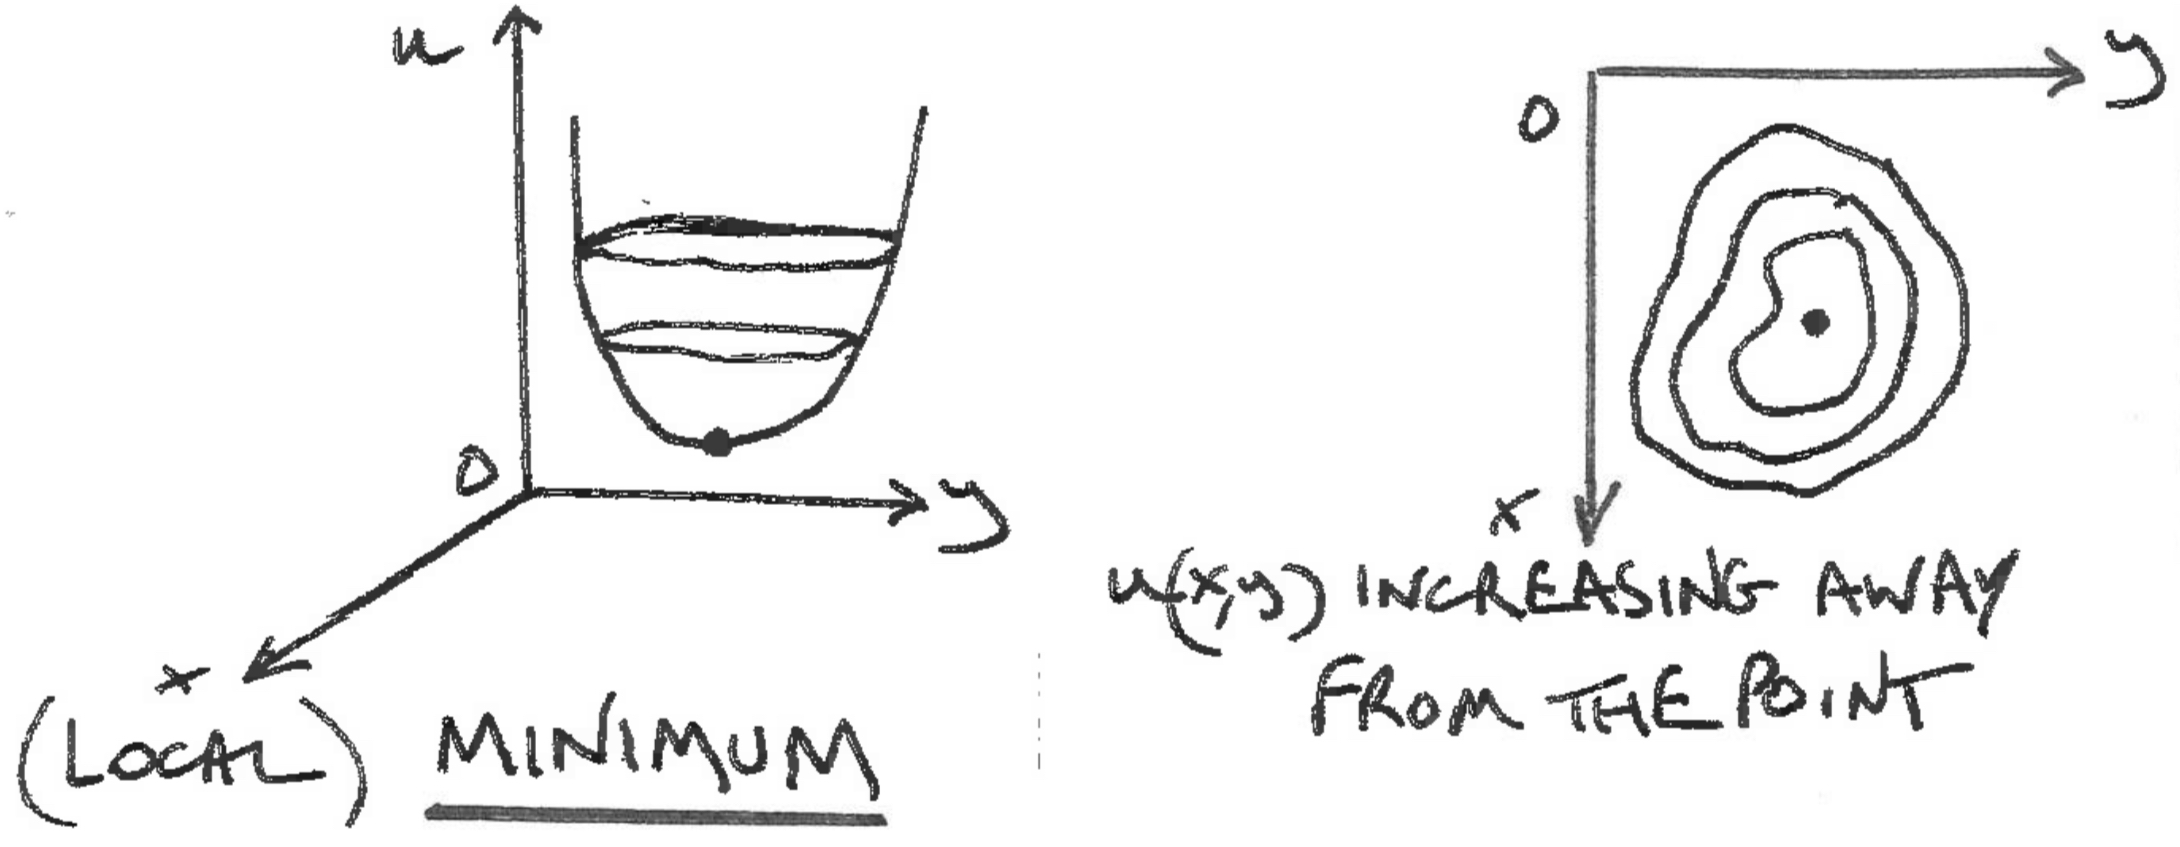 u
0
y
x
(LOCAL) MINIMUM
y
0
x
u(x,y) INCREASING AWAY
FROM THE POINT